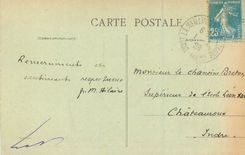 CARTE POSTALE
Remerciements et
sentiments respectueux
p. M. Hilaire
Monsieur le chanoine Breton
Supérieur de l'école Léon XIII
Châteauroux
Indre
25